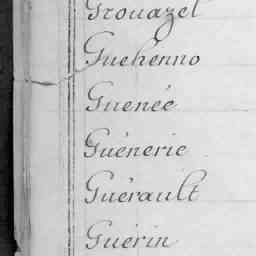 Grouazel
Guehénno
Guenée
Guénerie
Guérault
Guérin